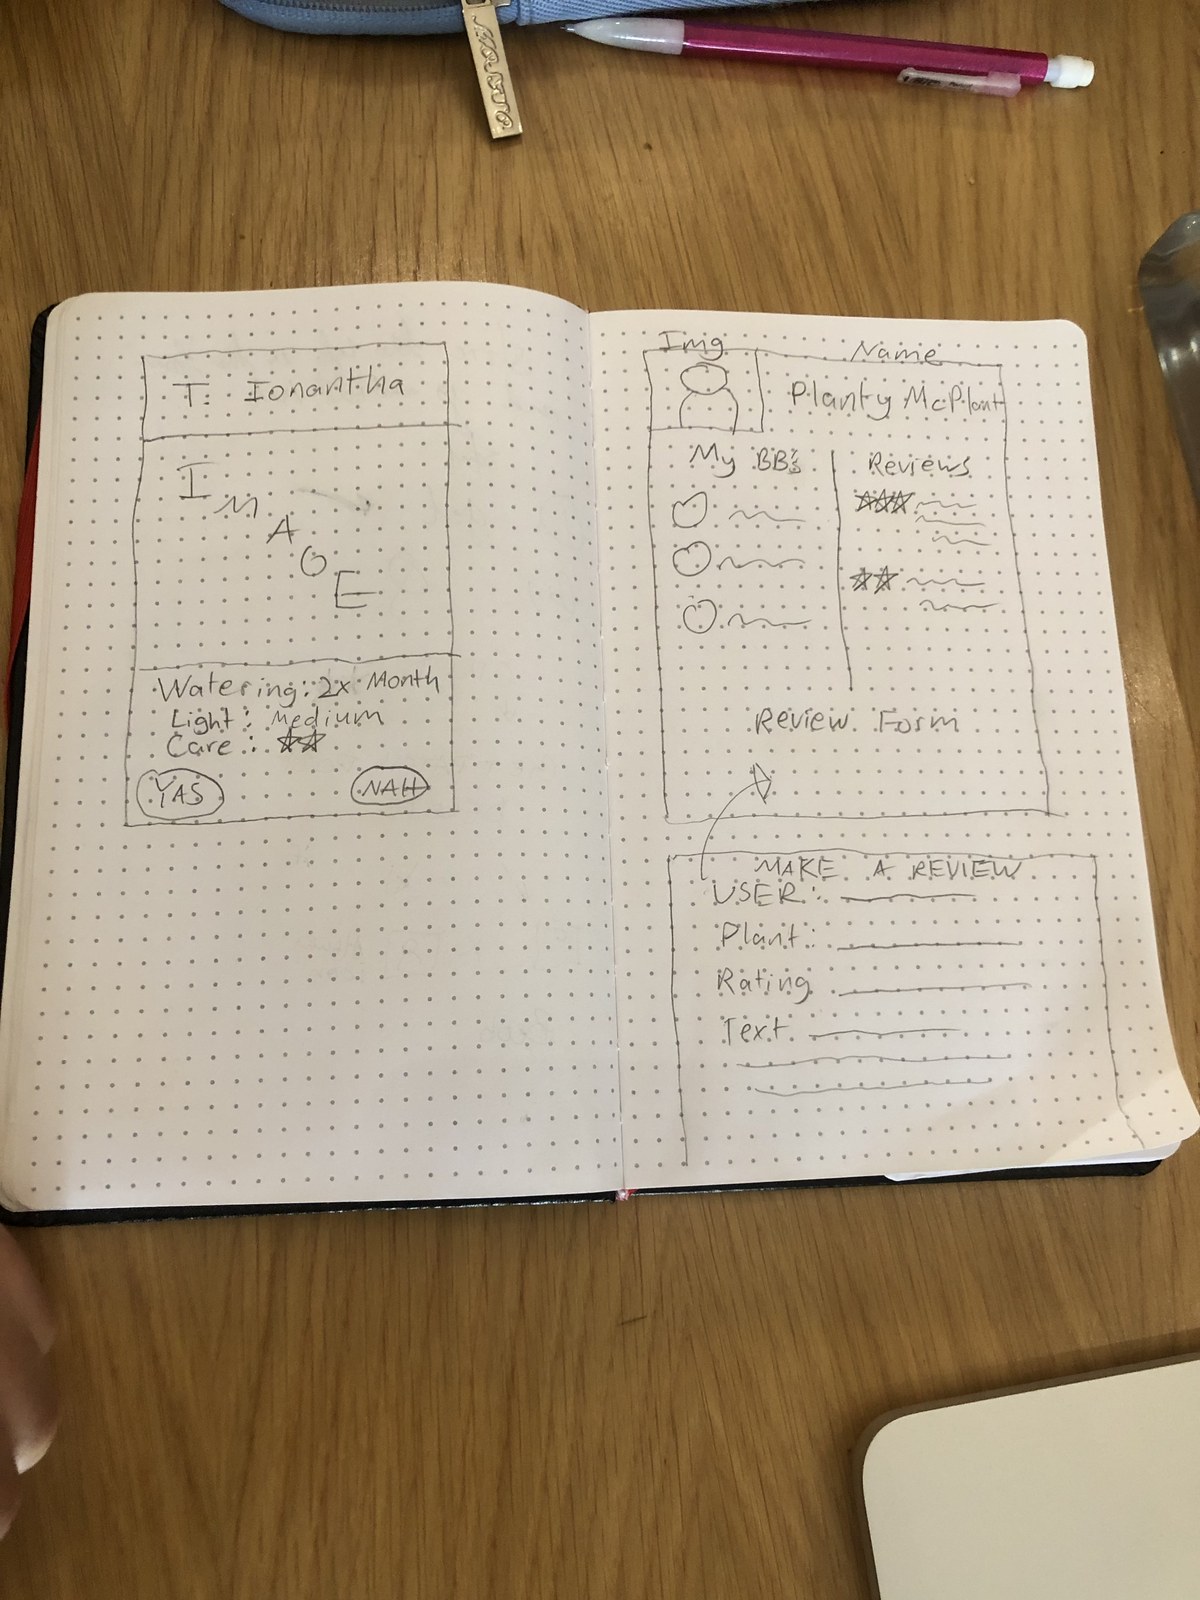 T. Ionantha
I
M
A
G
E
Watering: 2x Month
Light: Medium
Care:
YAS
NAH
Img
Name
Planty McPlant
My BB's
Reviews
Review Form
MAKE A REVIEW
USER:
Plant:
Rating
Text